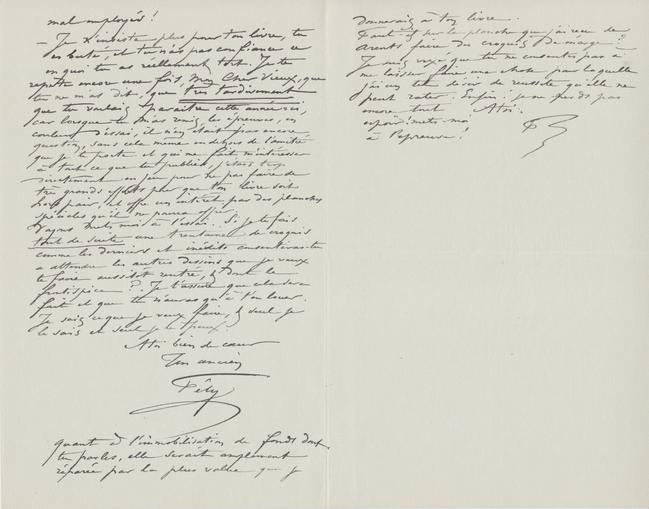 mal employés !
— Je n'insiste plus pour ton livre, tu
es buté, et tu n'as pas confiance ce
en quoi tu as réellement tort. Je te
répète encore une fois mon cher vieux, que
tu ne m'as dit, que très tardivement
que tu voulais paraître cette année ci,
car lorsque tu m'as remis les épreuves, en
couleur d'essai, il n'en était pas encore
question, sans cela même en dehors de l'amitié
que je te porte et qui me fait m'intéresser
à tout ce que tu publies, j'étais trop
directement en jeu pour ne pas faire de
très grands efforts pour que ton livre soit
hors pair, et offre un intérêt par des planches
spéciales qu'il ne pourra offrir.
Voyons mets moi à l'essai. Si je te fais
tout de suite une trentaine de croquis
comme les derniers et inédits consentiras-tu
à attendre les autres dessins que je veux
te faire aussitôt rentré, & dont le
frontispice ?. Je t'assure que cela sera
fait et que tu n'auras qu'à t'en louer.
Je sais ce que je veux faire, & seul je
le sais et seul je le peux.
A toi bien de cœur
Ton ancien
quant à l'immobilisation de fonds dont
tu parles, elle serait amplement
réparée par la plus value que je
donnerais à ton livre.
Faut-il sur la planche que j'ai reçue de
Arents faire des croquis de marge ?
Je suis vexé que tu ne consentes pas à
me laisser faire une chose pour laquelle
j'ai un tel désir de réussite qu'elle ne
peut rater. Enfin ! je ne perds pas
encore tout A toi.
espoir, mets-moi
à l'épreuve !